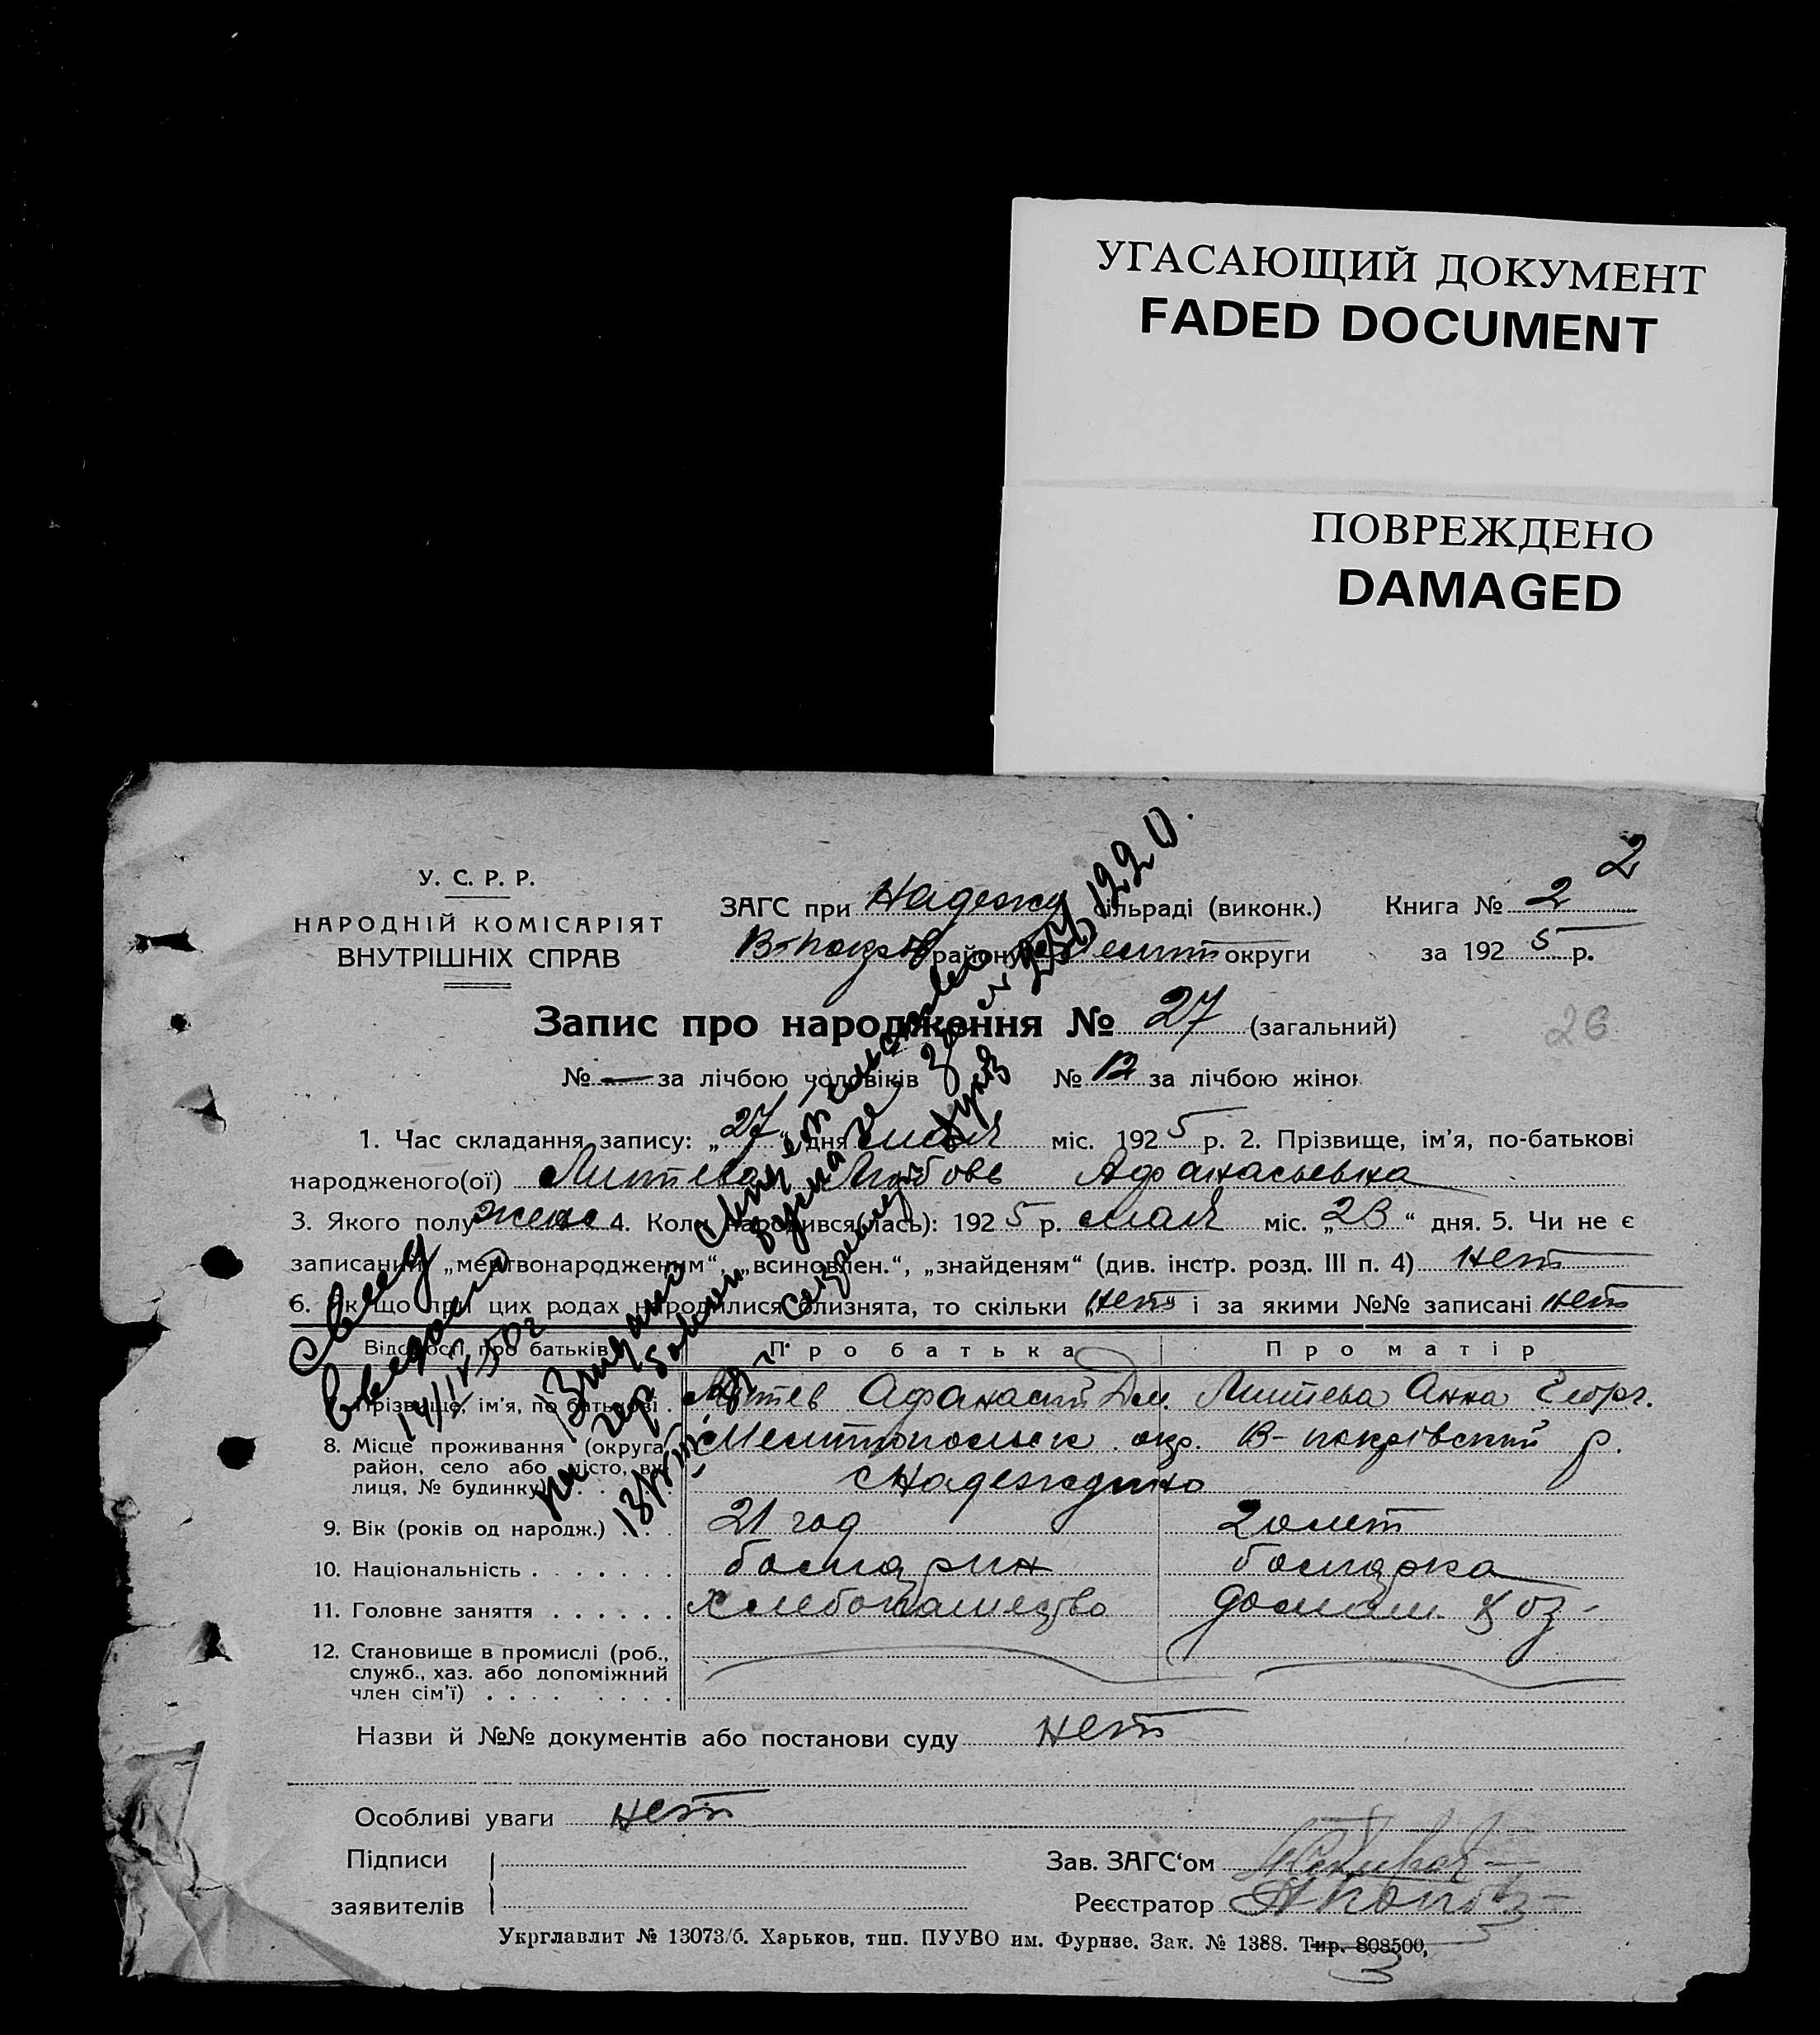 УГАСАЮЩИЙ ДОКУМЕНТ
FADED DOCUMENT
ПОВРЕЖДЕНО
DAMAGED
2
У. С. Р. Р.
НАРОДНІЙ КОМІСАРІЯТ
ВНУТРІШНІХ СПРАВ
ЗАГС при Надежд сільраді (виконк.) Книга № 2
району Мелит округи за 1925 р.
Запис про народження № 27 (загальний)
26
№ — за лічбою чоловіків № 12 за лічбою жінок
1. Час складання запису: „27“ дня мая міс. 1925 р. 2. Прізвище, ім’я, по-батькові
народженого(ої) Любовь Афанасьевна
3. Якого полу женс 4. Коли народився(лась): 1925 р. мая міс. „23“ дня. 5. Чи не є
записаний „мертвонародженим“, „всиновлен.“, „знайденям“ (див. інстр. розд. III п. 4) нет
6. Якщо при цих родах народилися близнята, то скільки „нет“ і за якими №№ записані нет
Відомості про батьків Про батька Про матір
Прізвище, ім’я, по батькові . Афанасий Дм. Анна Георг.
8. Місце проживання (округа, район, село або місто, вулиця, № будинку) Мелитопольск. окр. В-покрівский р.
с Надеждино
9. Вік (років од народж.) . . . 21 год 20 лет
10. Національність . . . . . . . болгарин болгарка
11. Головне заняття . . . . . . хлебопашество домаш. хоз-
12. Становище в промислі (роб.,
служб., хаз. або допоміжний
член сім’ї) . . . . . . . . .
Назви й №№ документів або постанови суду нет
Особливі уваги нет
Підписи
заявителів
Зав. ЗАГС‘ом
Реєстратор А Попов
Укрглавлит № 13073/б. Харьков, тип. ПУУВО им. Фрунзе. Зак. № 1388. Тир. 808500,
3
14/IX 50г
Выдано свидетельство